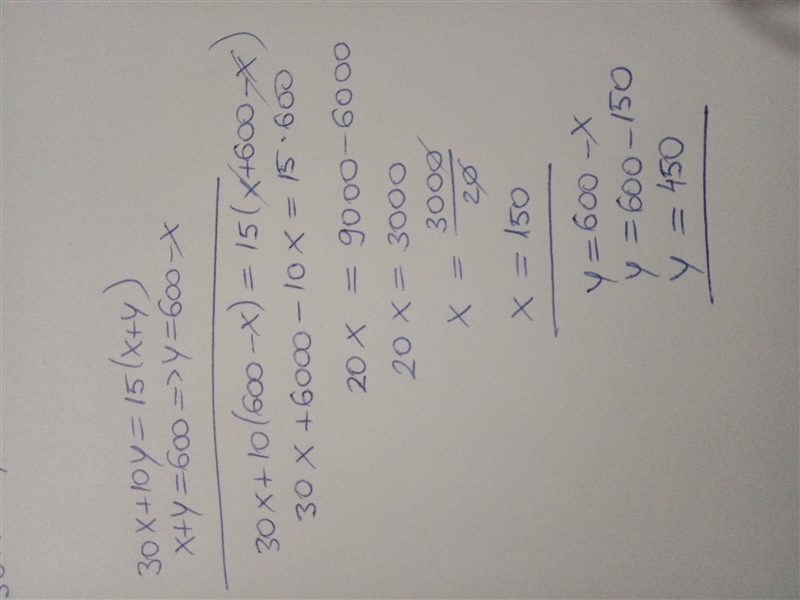 30x+10y=15(x+y)
x+y=600=>y=600-x
30x+10(600-x)=15(x+600-x)
30x+6000-10x=15·600
20x=9000-6000
20x=3000
x=3000/20
x=150
y=600-x
y=600-150
y=450